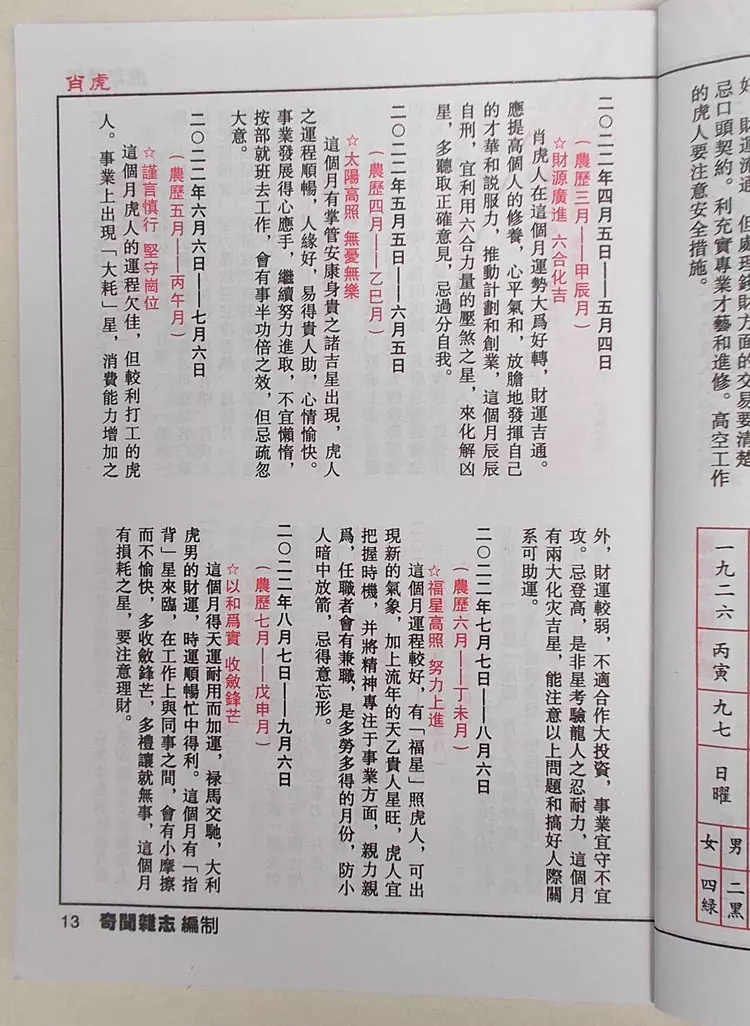 好，財運流通，但處理錢財方面的交易要清楚
忌口頭契約。利充實專業才藝和進修。高空工作
的虎人要注意安全措施。
一九二六
丙寅
九七
日曜
男
二黑
女
四緑
肖虎
二〇二二年四月五日——五月四日
（農歷三月——甲辰月）
☆財源廣進 六合化吉
肖虎人在這個月運勢大爲好轉，財運吉通。
應提高個人的修養，心平氣和，放膽地發揮自己
的才華和説服力，推動計劃和創業，這個月辰辰
自刑，宜利用六合力量的壓煞之星，來化解凶
星，多聽取正確意見，忌過分自我。
二〇二二年五月五日——六月五日
（農歷四月——乙巳月）
☆太陽高照 無憂無樂
這個月有掌管安康身貴之諸吉星出現，虎人
之運程順暢，人緣好，易得貴人助，心情愉快。
事業發展得心應手，繼續努力進取，不宜懶惰，
按部就班去工作，會有事半功倍之效，但忌疏忽
大意。
二〇二二年六月六日——七月六日
（農歷五月——丙午月）
☆謹言慎行 堅守崗位
這個月虎人的運程欠佳，但較利打工的虎
人。事業上出現「大耗」星，消費能力增加之
外，財運較弱，不適合作大投資，事業宜守不宜
攻。忌登高，是非星考驗龍人之忍耐力，這個月
有兩大化灾吉星，能注意以上問題和搞好人際關
系可助運。
二〇二二年七月七日——八月六日
（農歷六月——丁未月）
☆福星高照 努力上進
這個月運程較好，有「福星」照虎人，可出
現新的氣象，加上流年的天乙貴人星旺，虎人宜
把握時機，并將精神專注于事業方面，親力親
爲，任職者會有兼職，是多勞多得的月份，防小
人暗中放箭，忌得意忘形。
二〇二二年八月七日——九月六日
（農歷七月——戊申月）
☆以和爲實 收斂鋒芒
這個月得天運耐用而加運，禄馬交馳，大利
虎男的財運，時運順暢忙中得利。這個月有「指
背」星來臨，在工作上與同事之間，會有小摩擦
而不愉快，多收斂鋒芒，多禮讓就無事，這個月
有損耗之星，要注意理財。
13 奇聞雜志 編制